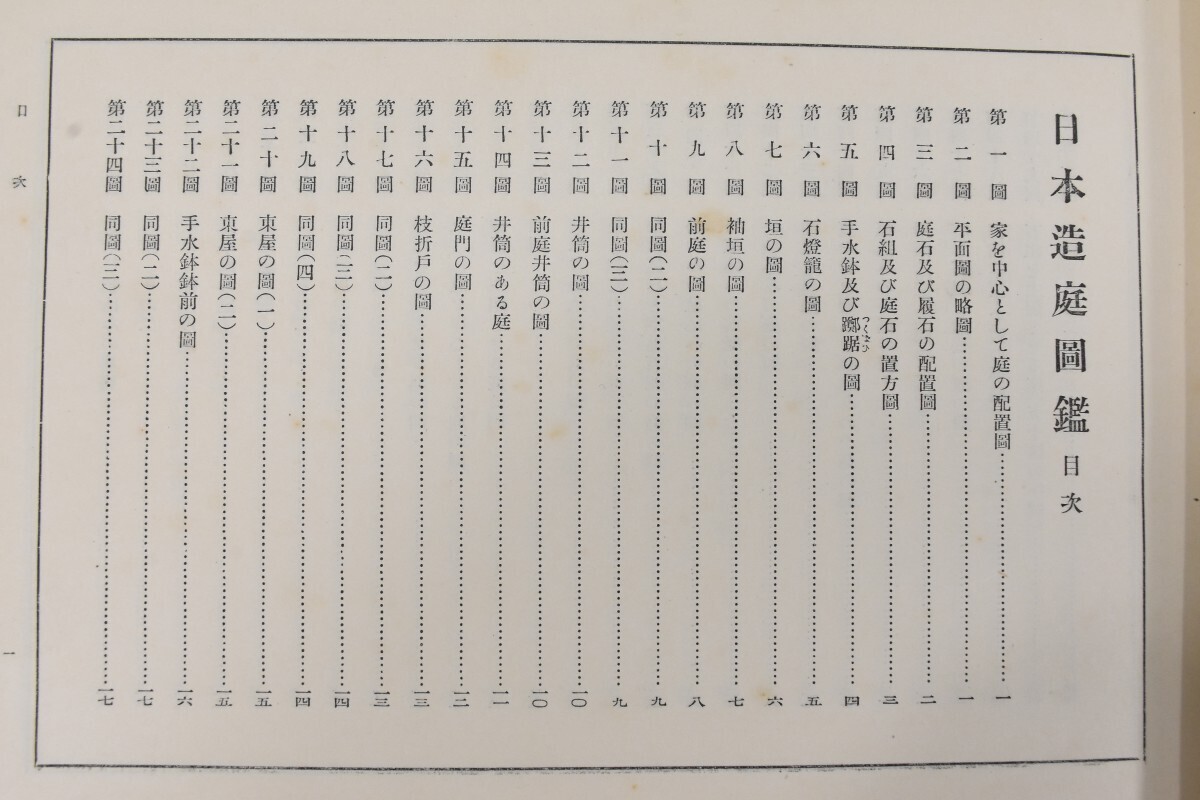 日本造庭圖鑑 目次
第一圖 家を中心として庭の配置圖……一
第二圖 平面圖の略圖……一
第三圖 庭石及び履石の配置圖……二
第四圖 石組及び庭石の置方圖……三
第五圖 手水鉢及び躑踞つくばひの圖……四
第六圖 石燈籠の圖……五
第七圖 垣の圖……六
第八圖 袖垣の圖……七
第九圖 前庭の圖……八
第十圖 同圖(二)……九
第十一圖 同圖(三)……九
第十二圖 井筒の圖……一〇
第十三圖 前庭井筒の圖……一〇
第十四圖 井筒のある庭……一一
第十五圖 庭門の圖……一二
第十六圖 枝折戸の圖……一三
第十七圖 同圖(二)……一三
第十八圖 同圖(三)……一四
第十九圖 同圖(四)……一四
第二十圖 東屋の圖(一)……一五
第二十一圖 東屋の圖(二)……一五
第二十二圖 手水鉢鉢前の圖……一六
第二十三圖 同圖(二)……一七
第二十四圖 同圖(三)……一七
目次
一